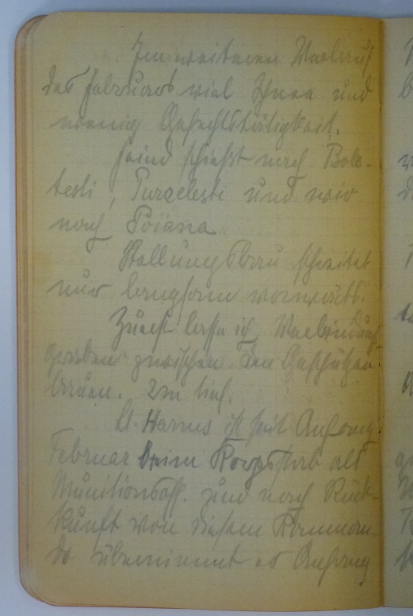 Im weiteren Verlauf
des Februars viel Schnee und
wenig Gefechtstätigkeit.
Feind schießt nach Bolo-
testi, Purcelesti und wir
nach Poiana.
Stellungsbau schreitet
nur langsam vorwärts.
Zuerst lasse ich Verbindungs-
graben zwischen den Geschützen
bauen. 2m tief.
Lt. Harms ist seit Anfang
Februar beim Korpsstab als
Munitionsoff. und nach Rück-
kunft von diesem Komman-
do übernimmt er Anfang